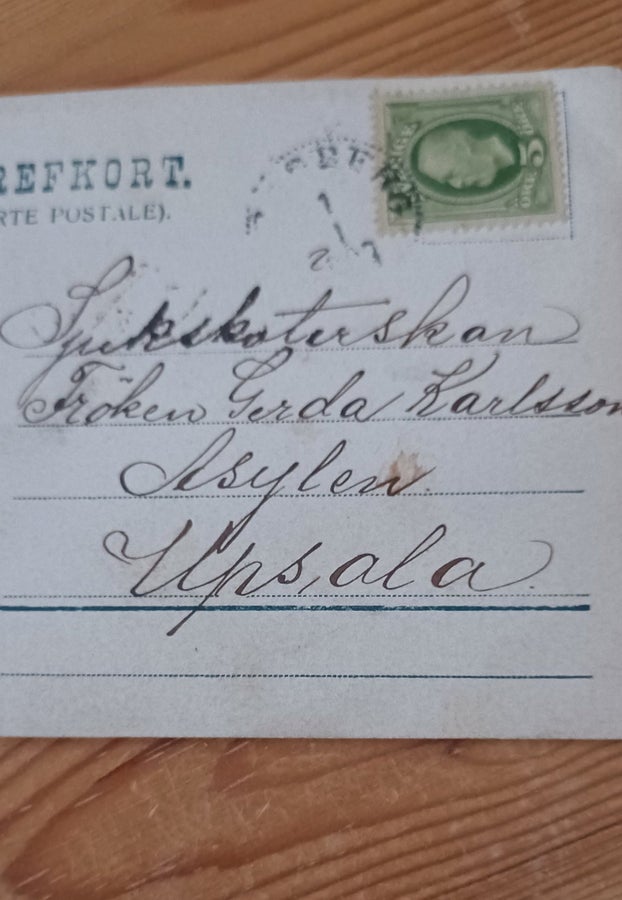 REFKORT.
RTE POSTALE).
SVERIGE
Sjukskøterskan
Fröken Gerda Karlsson
Asylen.
Upsala.